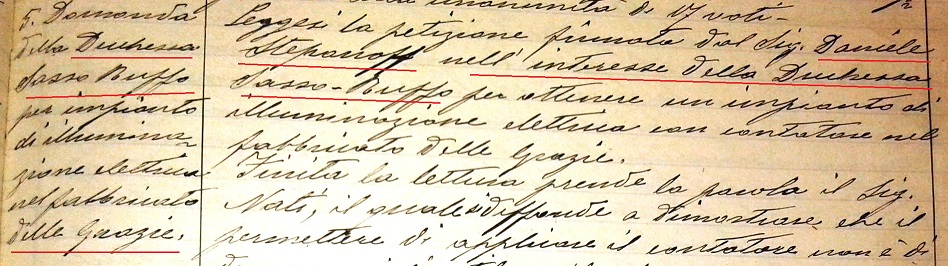 5. Domanda
della Duchessa
Sasso Ruffo
per impianto
di illumina-
zione elettrica
nel fabbricato
delle Grazie.
unanimità di 17 voti-
Leggesi la petizione firmata dal Sig. Daniele
Stepanoff nell'interesse della Duchessa
Sasso-Ruffo per ottenere un impianto di
illuminazione elettrica con contatore nel
fabbricato delle Grazie.
Finita la lettura prende la parola il Sig.
Nati, il quale si diffonde a dimostrare che il
permettere di applicare il contatore non è di